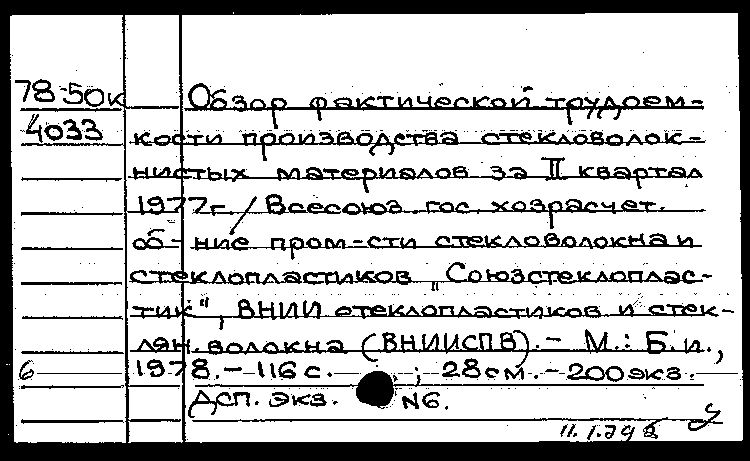 78-50к Обзор фактической трудоем-
4033 кости производства стекловолок-
нистых материалов за II квартал
1977г. / Всесоюз. гос. хозрасчет.
об-ние пром-сти стекловолокна и
стеклопластиков „Союзстеклоплас-
тик", ВНИИ стеклопластиков и стек-
лян. волокна (ВНИИСПВ). - М.: Б. и.,
6 1978. - 116 с. ; 28 см. - 200 экз.
ДСП. экз. №6.